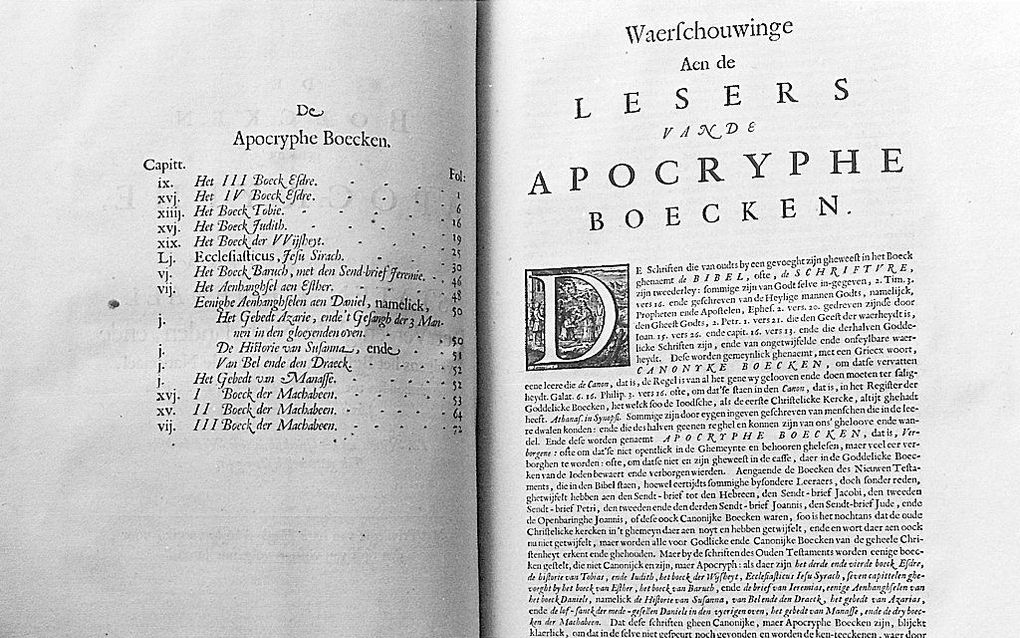 De
Apocryphe Boecken.
Capitt. Fol:
ix. Het III Boeck Esdre. 1
xvj. Het IV Boeck Esdre. 6
xiiij. Het Boeck Tobie. 16
xvj. Het Boeck Judith. 19
xix. Het Boeck der VVijsheyt. 25
Lj. Ecclesiasticus, Jesu Sirach. 30
vj. Het Boeck Baruch, met den Send-brief Jeremie. 46
vij. Het Aenhanghsel aen Esther. 48
Eenighe Aenhanghselen aen Daniel, namelick, 50
j. Het Gebedt Azarie, ende 't Gesangh der 3 Man-
nen in den gloeyenden oven. 50
j. De Historie van Susanna, ende 51
j. Van Bel ende den Draeck. 52
j. Het Gebedt van Manasse. 52
xvj. I Boeck der Machabeen. 53
xv. II Boeck der Machabeen. 64
vij. III Boeck der Machabeen. 72
Waerschouwinge
Aen de
LESERS
VANDE
APOCRYPHE
BOECKEN.
DE Schriften die van oudts by een gevoeght zijn gheweest in het Boeck
ghenaemt de BIBEL, ofte, de SCHRIFTVRE,
zijn tweederley: sommige zijn van Godt selve in-gegeven, 2. Tim. 3.
vers 16. ende geschreven van de Heylige mannen Godts, namelijck,
Propheten ende Apostelen, Ephes. 2. vers. 20. gedreven zijnde door
den Gheest Godts, 2. Petr. 1. vers 21. die den Geest der waerheydt is,
Ioan. 15. vers 26. ende capit. 16. vers 13. ende die derhalven Godde-
licke Schriften zijn, ende van ongetwijfelde ende onfeylbare waer-
heydt. Dese worden gemeynlick ghenaemt, met een Griecx woort,
CANONYKE BOECKEN, om datse vervatten
eene leere die de Canon, dat is, de Regel is van al het gene wy gelooven ende doen moeten ter salig-
heydt. Galat. 6. 16. Philip. 3. vers 16. ofte, om dat'se staen in den Canon, dat is, in het Register der
Goddelicke Boecken, het welck soo de Ioodsche, als de eerste Christelicke Kercke, altijt ghehadt
heeft. Athanas. in Synops. Sommige zijn door eygen ingeven geschreven van menschen die in de lee-
re dwalen konden: ende des halven geenen reghel en konnen zijn van ons' gheloove ende wan-
del. Ende dese worden genaemt APOCRYPHE BOECKEN, dat is, Ver-
borgene: ofte om dat'se niet opentlick in de Ghemeynte en behooren ghelesen, maer veel eer ver-
borghen te worden: ofte, om datse niet en zijn gheweest in de casse, daer in de Goddelicke Boec-
ken van de Ioden bewaert ende verborgen wierden. Aengaende de Boecken des Nieuwen Testa-
ments, die in den Bibel staen, hoewel eertijdts sommighe bysondere Leeraers, doch sonder reden,
ghetwijfelt hebben aen den Sendt-brief tot den Hebreen, den Sendt-brief Jacobi, den tweeden
Sendt-brief Petri, den tweeden ende den derden Sendt-brief Joannis, den Sendt-brief Jude, ende
de Openbaringhe Joannis, of dese oock Canonijke Boecken waren, soo is het nochtans dat de oude
Christelicke kercken in 't ghemeyn daer aen noyt en hebben getwijfelt, ende en wort daer aen oock
nu niet getwijfelt, maer worden alle voor Godlicke ende Canonijke Boecken van de geheele Chri-
stenheyt erkent ende ghehouden. Maer by de schriften des Ouden Testaments worden eenige boec-
ken gestelt, die niet Canonijck en zijn, maer Apocryph: als daer zijn het derde ende vierde boeck Esdre,
de historie van Tobias, ende Iudith, het boeck der Wijsheyt, Ecclesiasticus Iesu Syrach, seven capittelen ghe-
voeght by het boeck van Esther, het boeck van Baruch, ende de brief van Ieremias, eenige Aenhanghselen van
het boeck Daniels, namelick de Historie van Susanna, van Bel ende den Draeck, het gebedt van Azarias,
ende de lof-sanck der mede-gesellen Daniels in den vyerigen oven, het gebedt van Manasse, ende de dry boec-
ken der Machabeen. Dat dese schriften gheen Canonijke, maer Apocryphe Boecken zijn, blijckt
klaerlick, om dat in de selve niet gespeurt noch gevonden en worden de ken-teeckenen, waer door